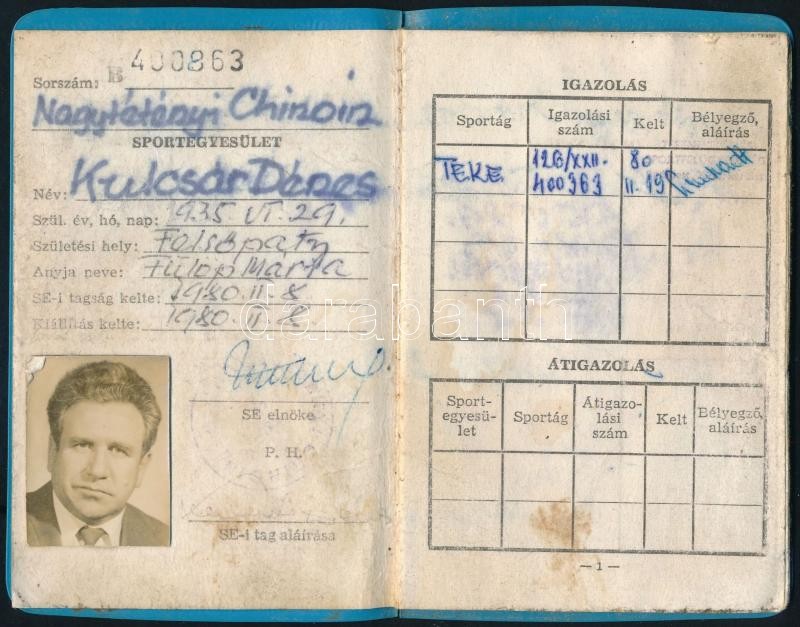 Sorszám: B 400863
Nagytétényi Chinoin
SPORTEGYESÜLET
Név: Kulcsár Dénes
Szül. év, hó, nap: 1935. VI. 29.
Születési hely: Felsőpaty
Anyja neve: Fülöp Márta
SE-i tagság kelte: 1980. II. 8
Kiállítás kelte: 1980. II. 8
SE elnöke
P. H.
SE-i tag aláírása
IGAZOLÁS
Sportág Igazolási szám Kelt Bélyegző, aláírás
TEKE 126/XXII- 80
400363 II. 19
ÁTIGAZOLÁS
Sport- Átigazo- Bélyegző,
egyesü- Sportág lási Kelt aláírás
let szám
— 1 —
darabanth